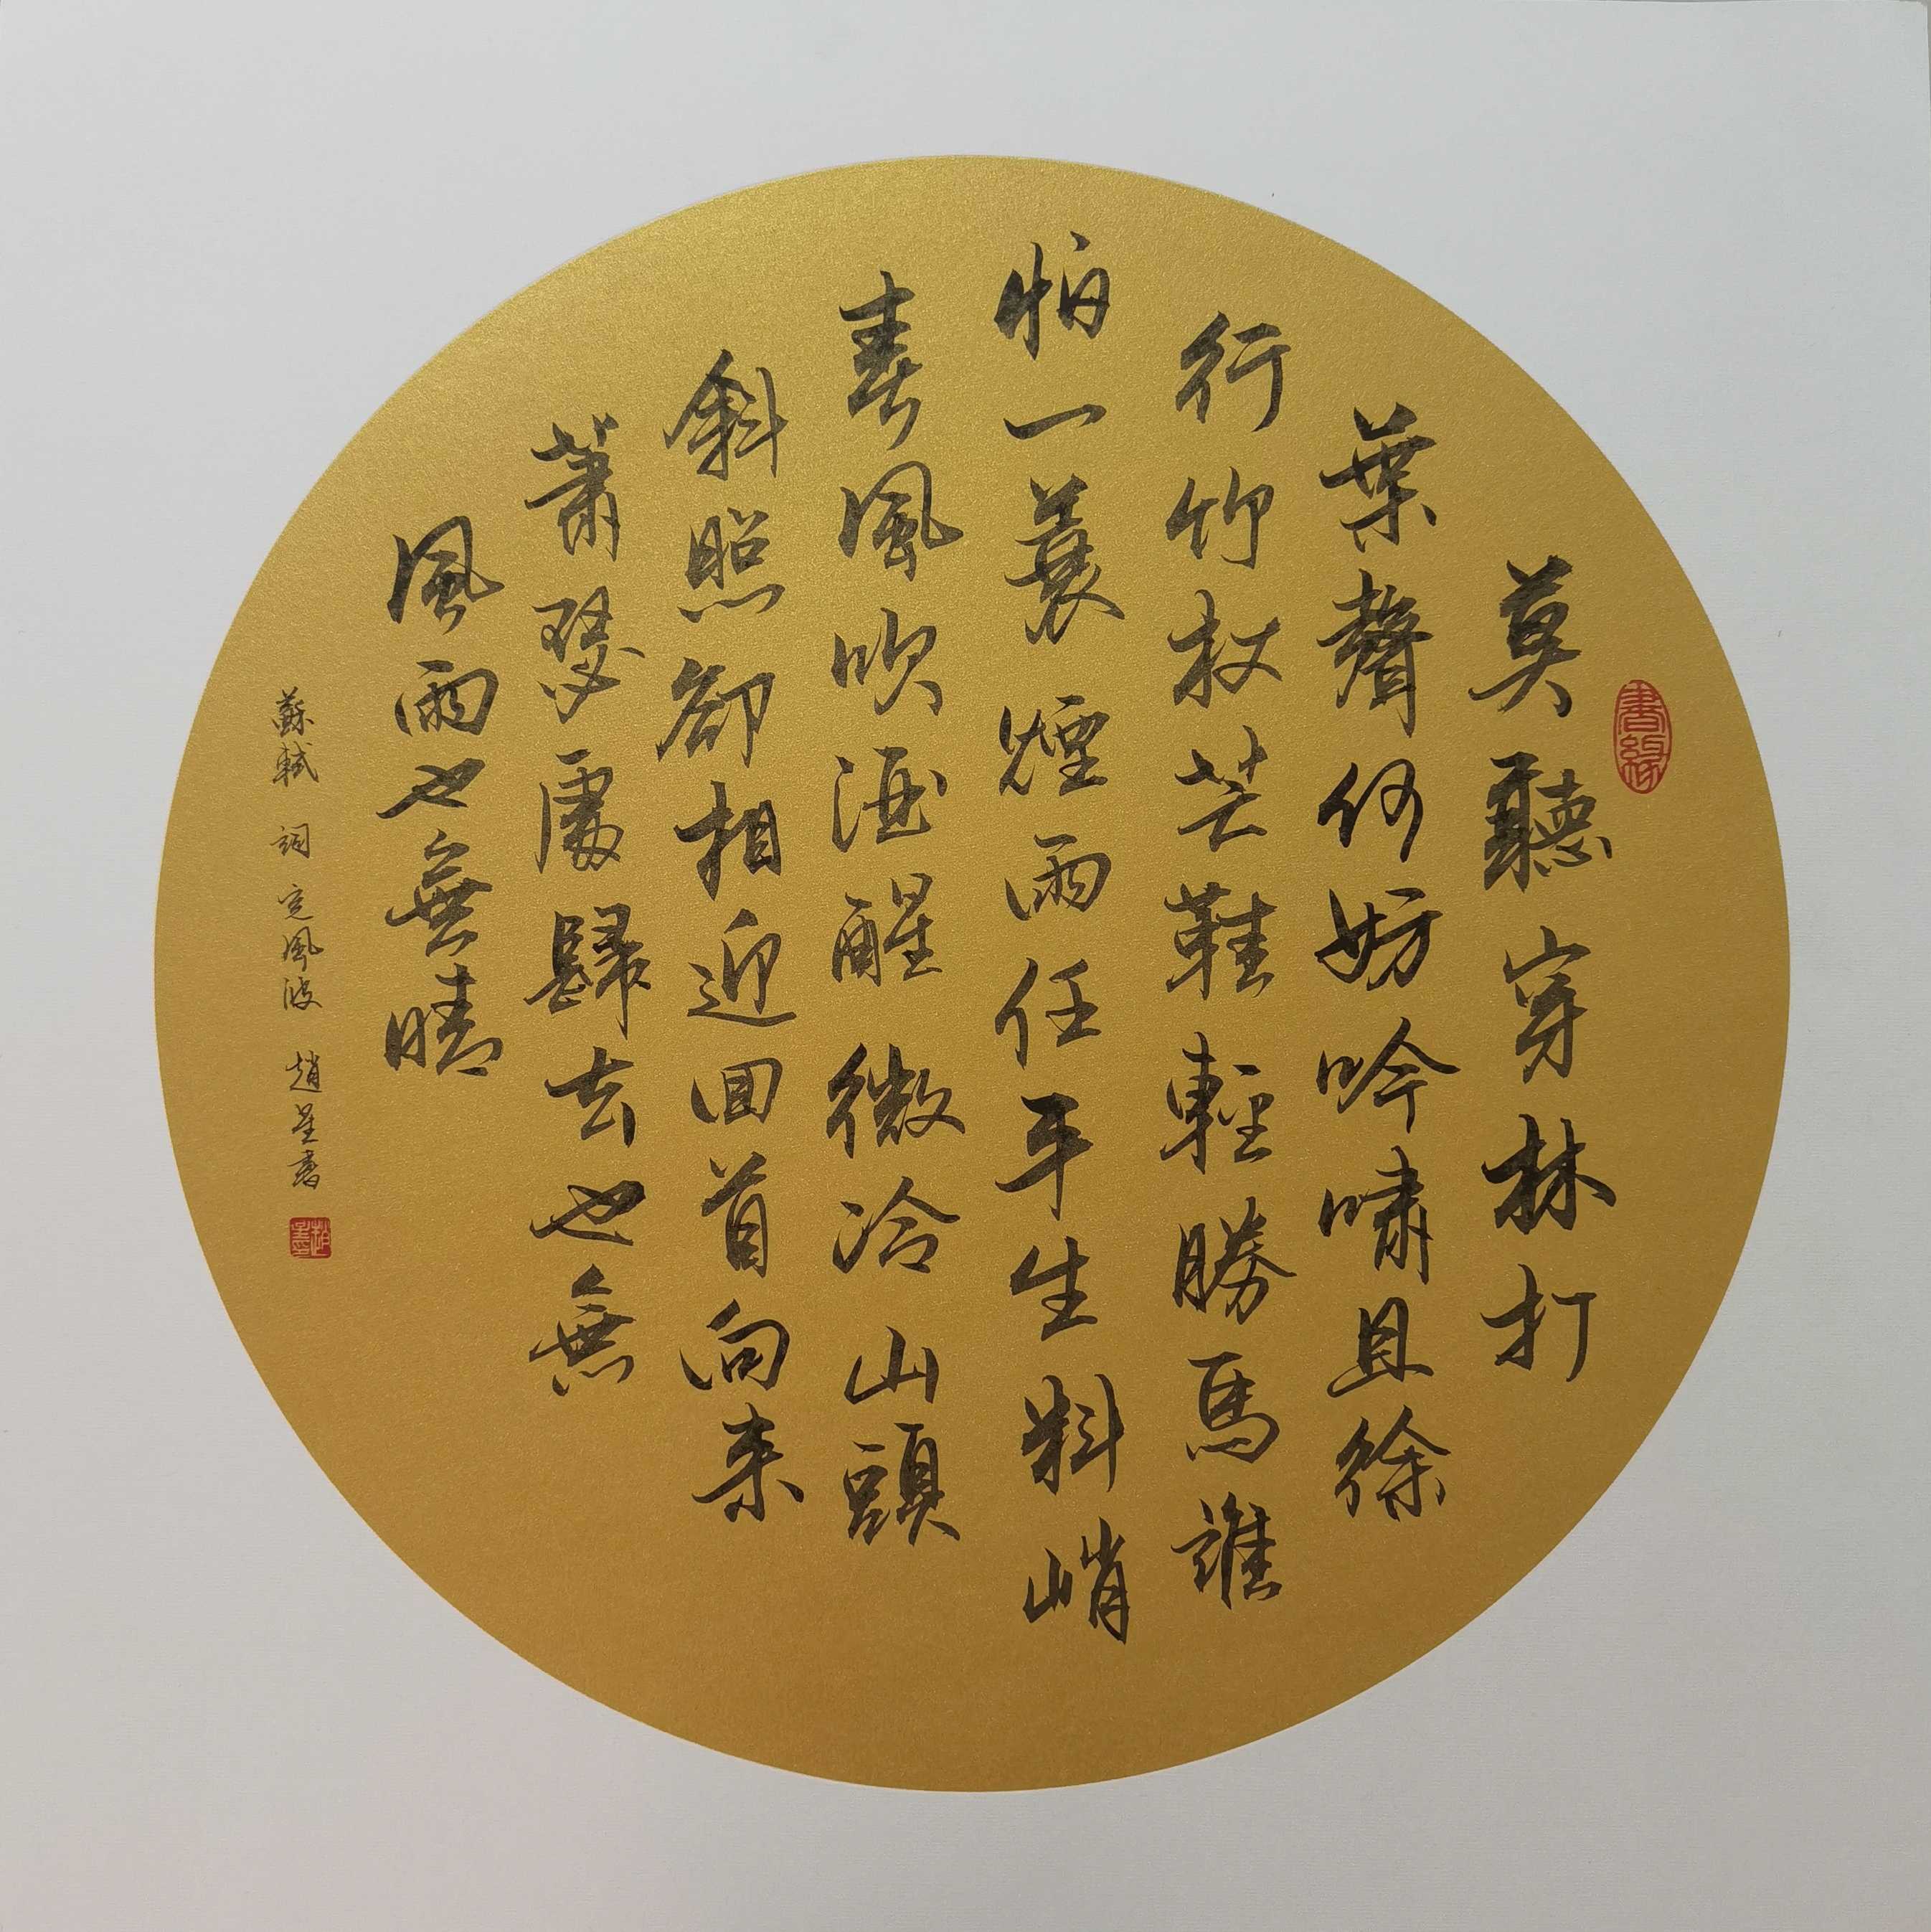 莫聽穿林打
葉聲何妨吟嘯且徐
行竹杖芒鞋輕勝馬誰
怕一蓑煙雨任平生料峭
春風吹酒醒微冷山頭
斜照卻相迎回首向来
蕭瑟處歸去也無
風雨也無晴
蘇軾 詞 定風波 趙星書
書緣